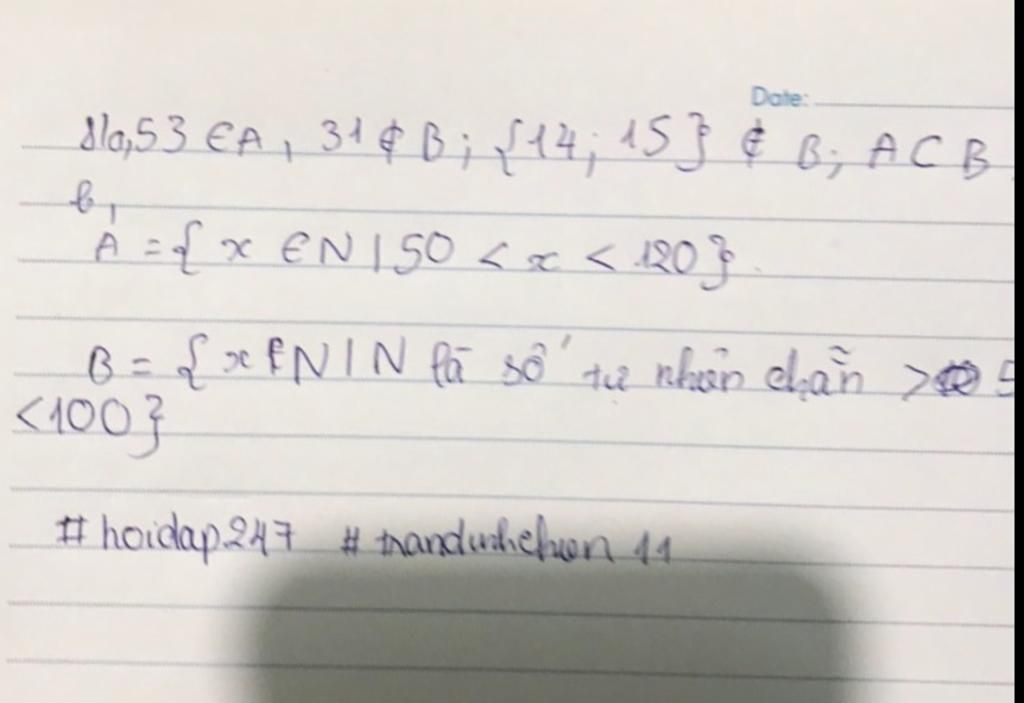 Date:
a, 53 ∈ A, 31 ∉ B; {14; 15} ∉ B; A ⊂ B
b,
A = { x ∈ N | 50 < x < 120}.
B = { x ∈ N | N là số tự nhiên chẵn > 5
<100}
#hoidap247 #trandinhchuon11